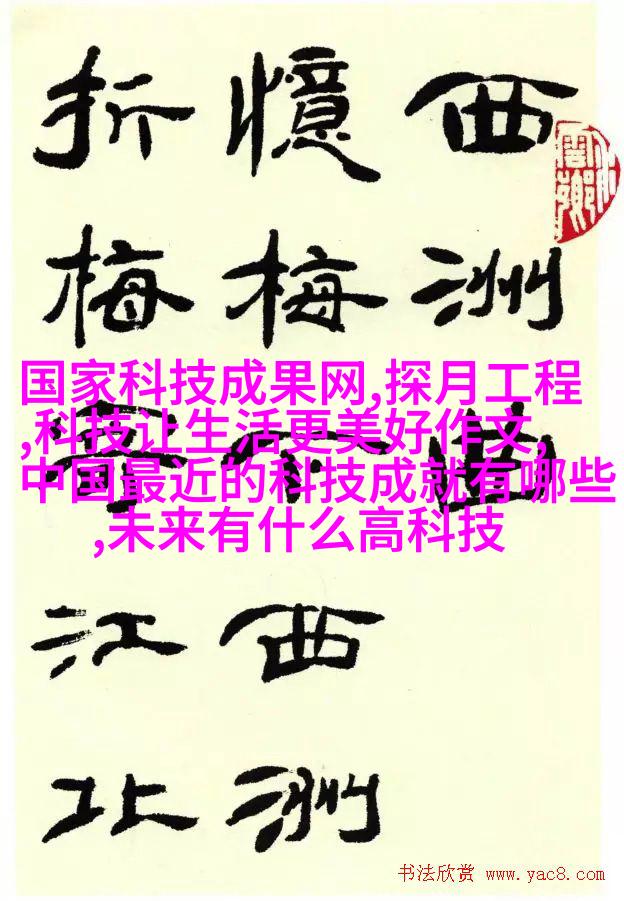 西洲曲
憶梅下西洲
折梅寄江北
国家科技成果网,探月工程
,科技让生活更美好作文,
中国最近的科技成就有哪些
,未来有什么高科技
书法欣赏 www.yac8.com